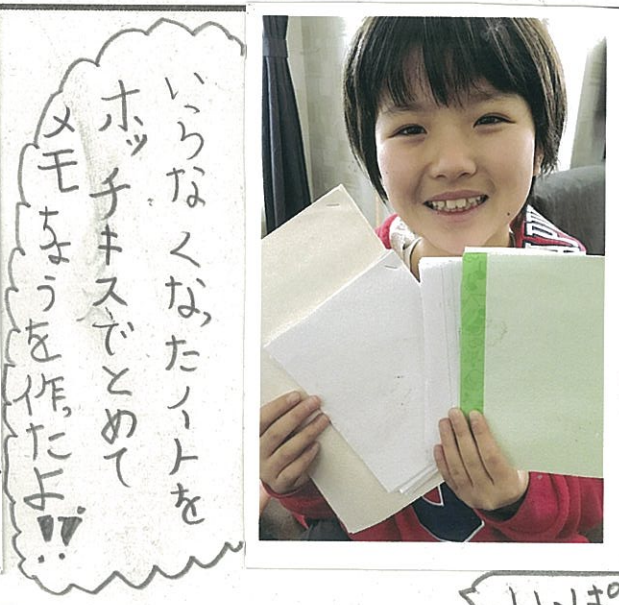 いらなくなったノートを
ホッチキスでとめて
メモちょうを作ったよ!!